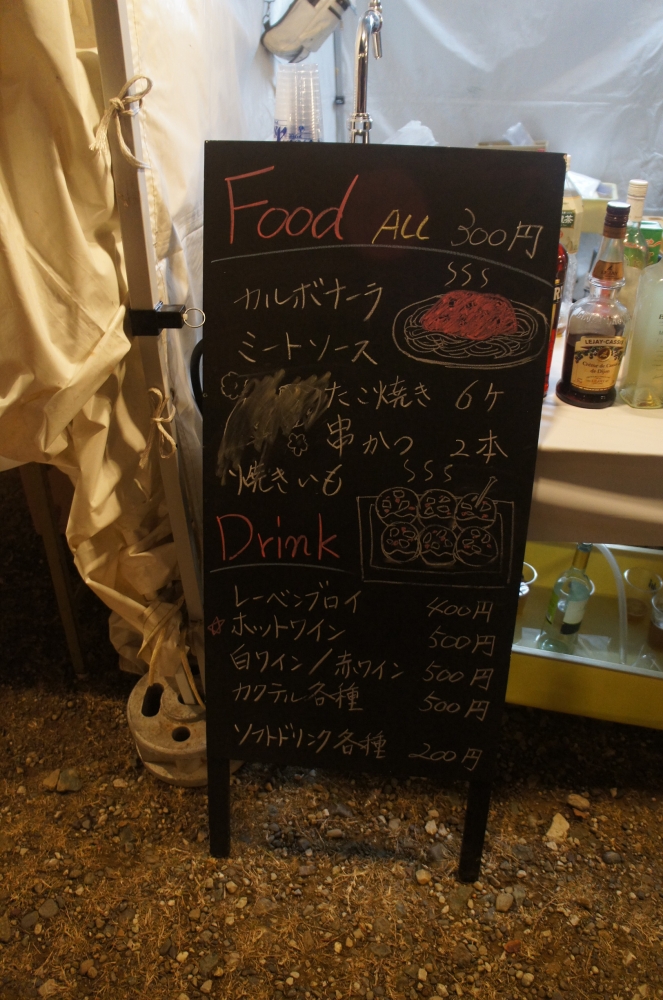 Food ALL 300円
カルボナーラ
ミートソース
たこ焼き 6ケ
串かつ 2本
焼きいも
Drink
レーベンブロイ 400円
ホットワイン 500円
白ワイン/赤ワイン 500円
カクテル各種 500円
ソフトドリンク各種 200円
LEJAY-CASSIS